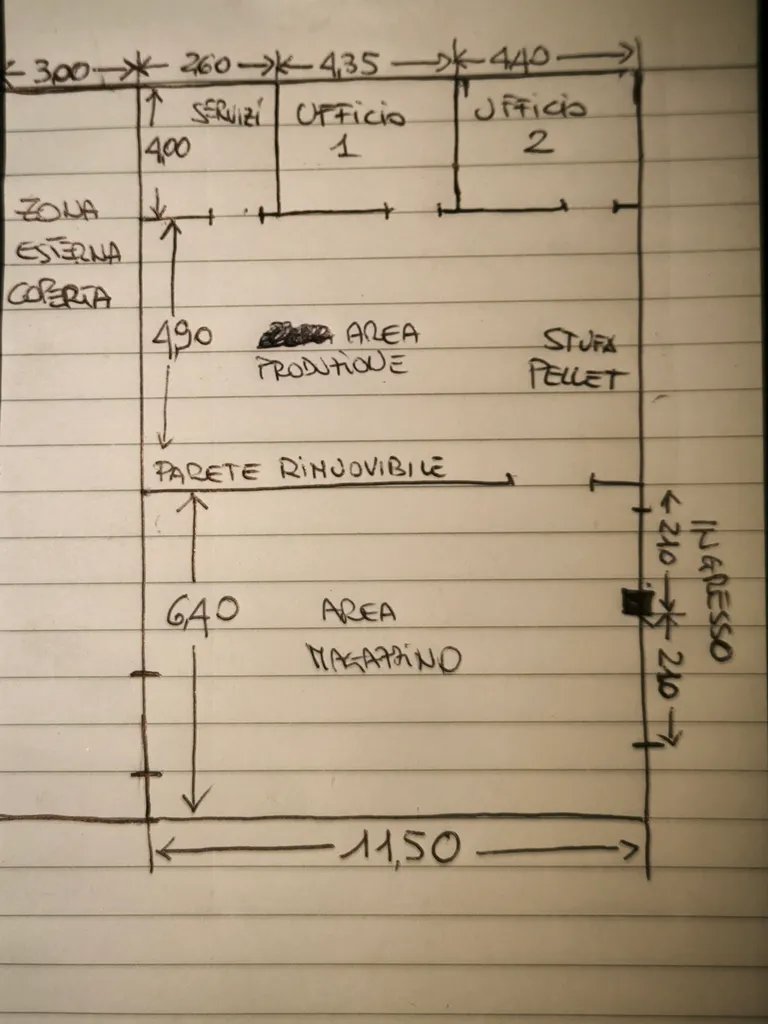 3,00 2,60 4,35 4,40
SERVIZI
4,00
UFFICIO
1
UFFICIO
2
ZONA
ESTERNA
COPERTA
4,90
AREA
PRODUZIONE
STUFA
PELLET
PARETE RIMUOVIBILE
6,40
AREA
MAGAZZINO
210
210
INGRESSO
11,50